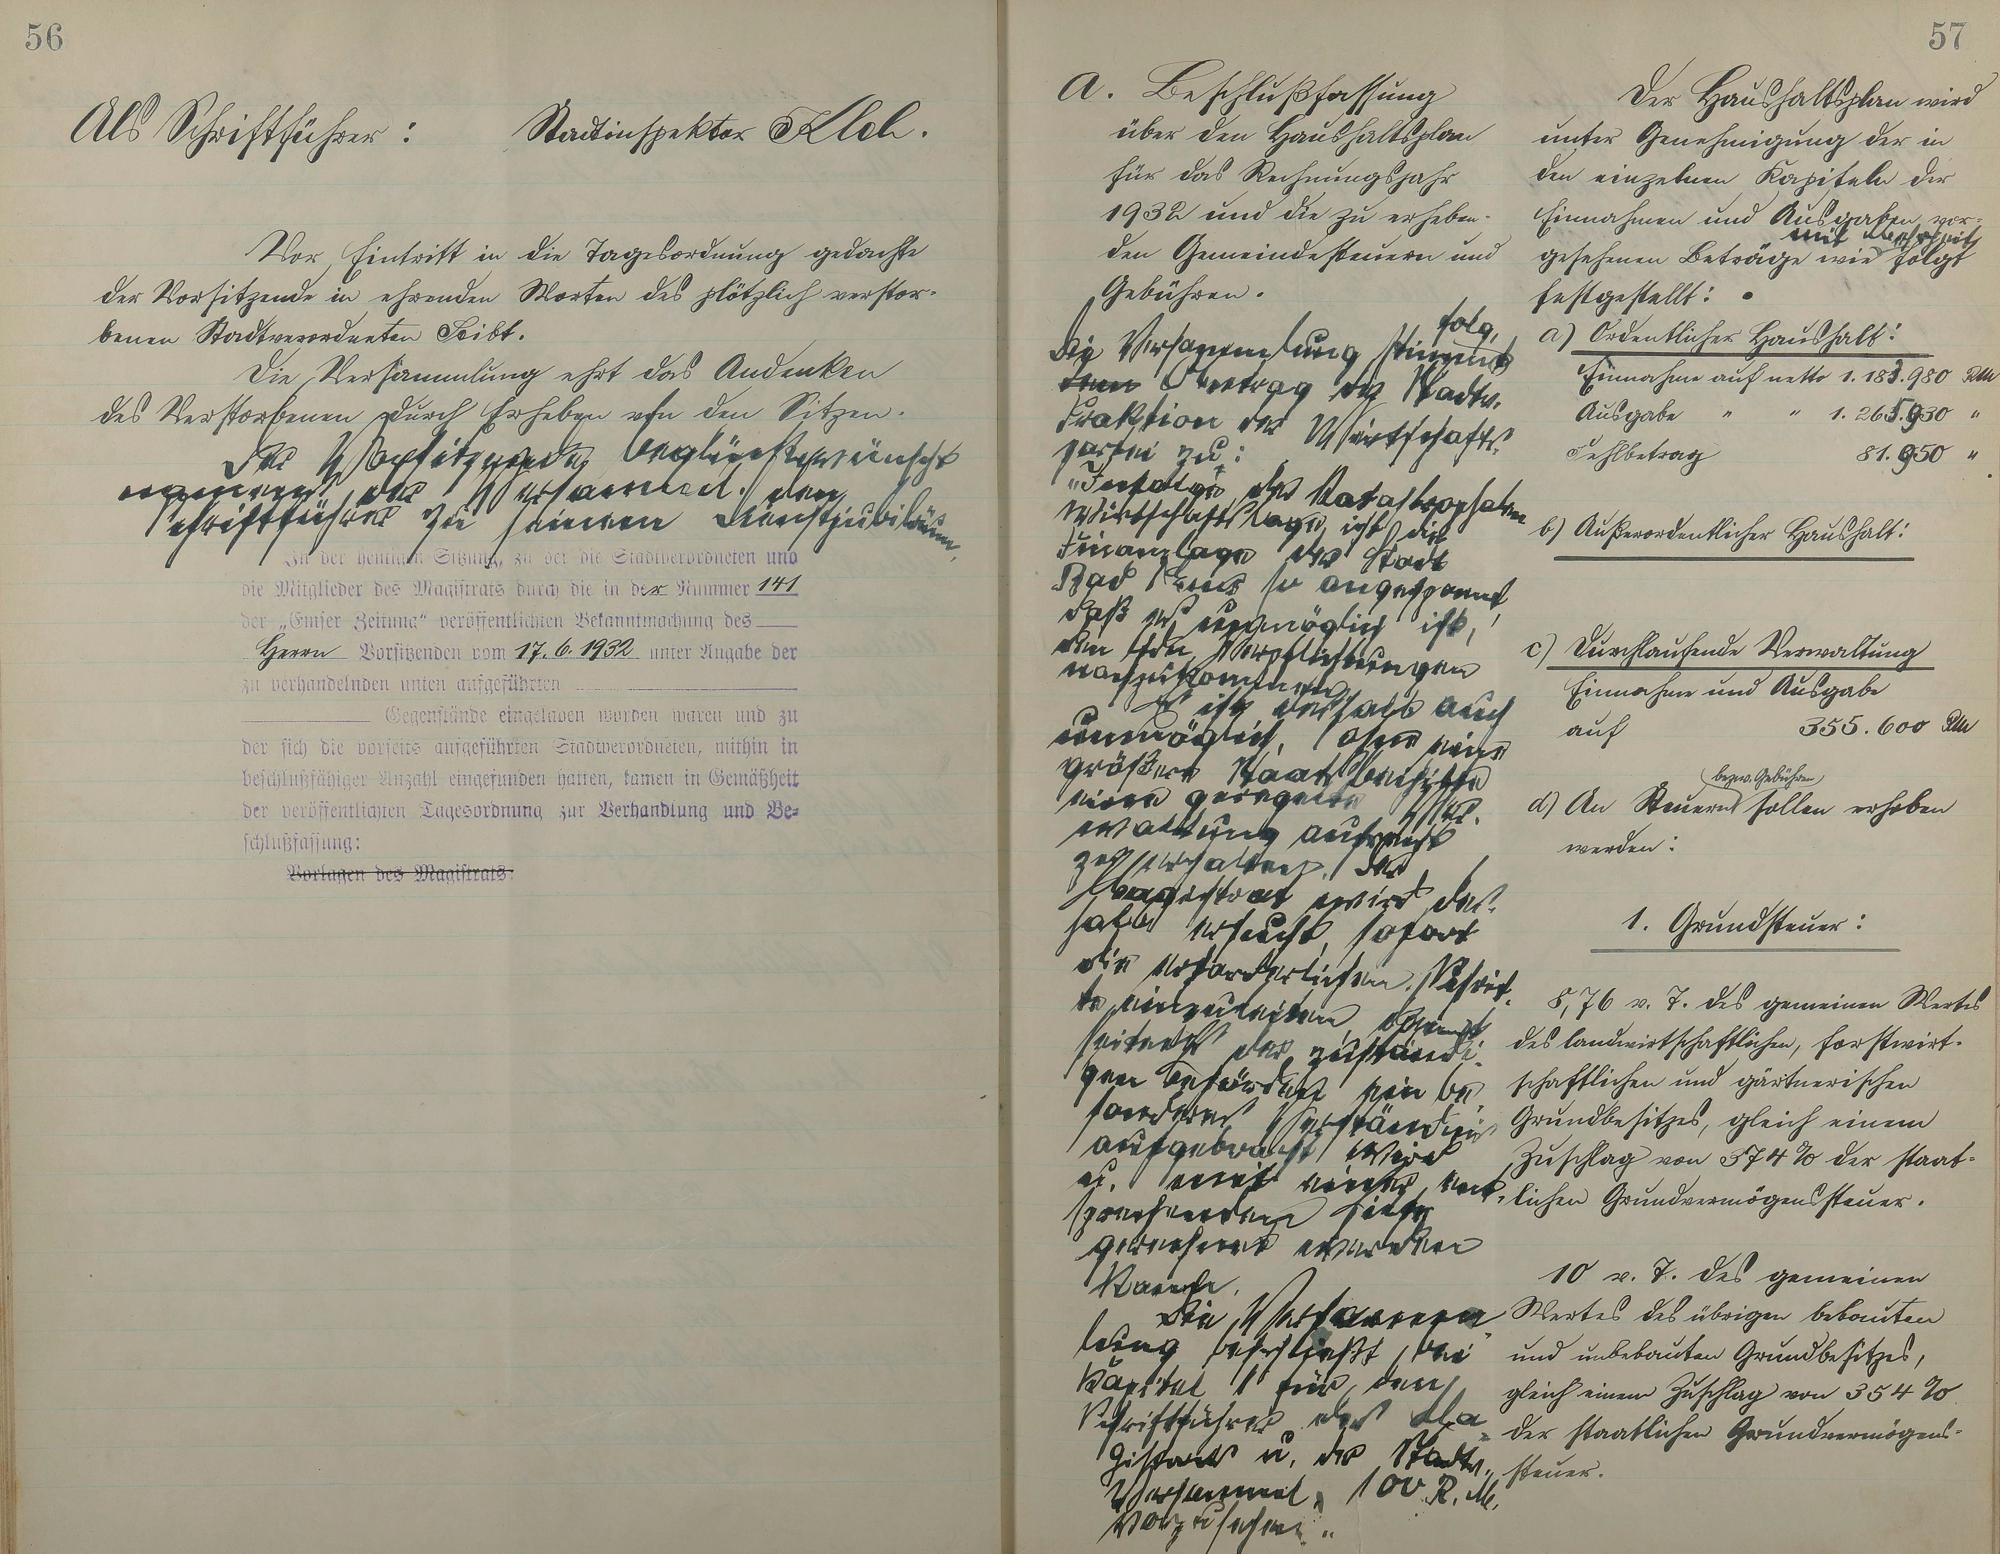 56
Als Schriftführer: Stadtinspektor
Vor Eintritt in die Tagesordnung gedachte
der Vorsitzende in ehrenden Worten des plötzlich verstor-
benen Stadtverordneten Seibt.
Die Versammlung ehrt das Andenken
des Verstorbenen durch Erheben von den Sitzen.
Der Vorsitzende beglückwünscht
namens der Versamml. den
Schriftführer zu seinem Dienstjubiläum.
In der heutigen Sitzung, zu der die Stadtverordneten und
die Mitglieder des Magistrats durch die in der Nummer 141
der „Emser Zeitung“ veröffentlichten Bekanntmachung des
Herrn Vorsitzenden vom 17.6.1932 unter Angabe der
zu verhandelnden unten aufgeführten
Gegenstände eingeladen worden waren und zu
der sich die vorseits aufgeführten Stadtverordneten, mithin in
beschlußfähiger Anzahl eingefunden hatten, kamen in Gemäßheit
der veröffentlichten Tagesordnung zur Verhandlung und Be-
schlußfassung:
Vorlagen des Magistrats:
57
A. Beschlußfassung
über den Haushaltsplan
für das Rechnungsjahr
1932 und die zu erheben-
den Gemeindesteuern und
Gebühren.
folg.
Die Versammlung stimmt
dem Antrag der Stadtv.
Fraktion der Wirtschafts-
partei zu:
„Infolge der Katastrophalen
Wirtschaftslage ist die
Finanzlage der Stadt
Bad Ems so angespannt,
daß es unmöglich ist,
den Verpflichtungen
nachzukommen.
Es ist deshalb auch
unmöglich, ohne eine
größere Staatsbeihilfe
eine geregelte Ver-
waltung aufrecht
zu erhalten. Der
Magistrat wird des-
halb ersucht, sofort
die erforderlichen Schrit-
te einzuleiten, damit
seitens der zuständi-
gen Behörden ein be
sonderes Verständnis
aufgebracht wird
u. mit einer ent-
sprechenden Hilfe
gerechnet werden
kann.
Die Versamm
lung beschließt, bei
Kapitel 1 für den
Schriftführer des Ma
gistrats u. der Stadtv.
Versamml. 100 R.M.
vorzusehen.“
Der Haushaltsplan wird
unter Genehmigung der in
den einzelnen Kapiteln der
Einnahmen und Ausgaben vor-
mit Mehrheit
gesehenen Beträge wie folgt
festgestellt:
a) Ordentlicher Haushalt:
Einnahme auf netto 1.183.980 RM
Ausgabe " " 1.265.930 "
Fehlbetrag 81.950 "
b) Außerordentlicher Haushalt:
c) Durchlaufende Verwaltung
Einnahme und Ausgabe
auf 355.600 RM
bezw. Gebühren
d) An Steuern sollen erhoben
werden:
1. Grundsteuer:
8,76 v. T. des gemeinen Wertes
des landwirtschaftlichen, forstwirt-
schaftlichen und gärtnerischen
Grundbesitzes, gleich einem
Zuschlag von 374% der staat-
lichen Grundvermögenssteuer.
10 v. T. des gemeinen
Wertes des übrigen bebauten
und unbebauten Grundbesitzes,
gleich einem Zuschlag von 354%
der staatlichen Grundvermögens-
steuer.